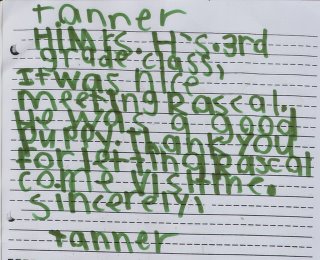 tanner
Hi Mrs. H-s. 3rd
grade class,
It was nice
meeting Rascal.
He was a good
puppy. thank you
for letting Rascal
come visit me.
Sincerely,
tanner